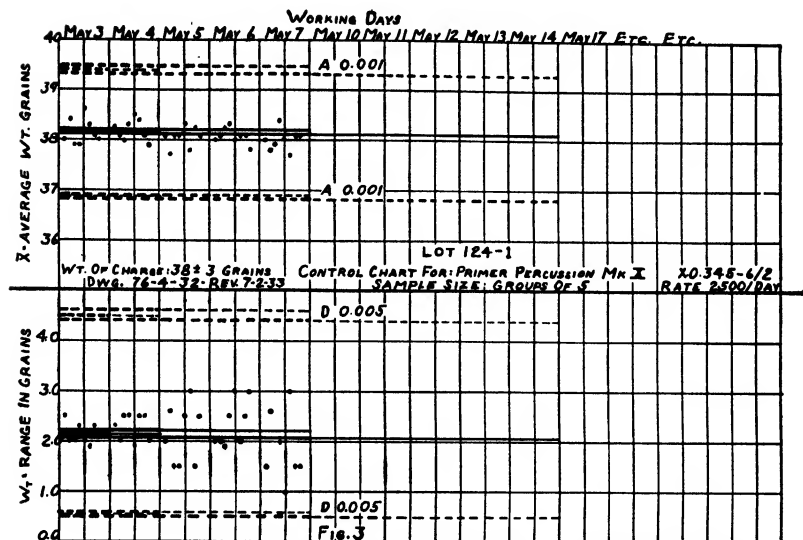 WORKING DAYS
MAY 3 MAY 4 MAY 5 MAY 6 MAY 7 MAY 10 MAY 11 MAY 12 MAY 13 MAY 14 MAY 17 ETC. ETC.
40
A 0.001
39
38
37
A 0.001
36
X̄-AVERAGE WT. GRAINS
LOT 124-1
WT. OF CHARGE: 38± 3 GRAINS CONTROL CHART FOR: PRIMER PERCUSSION MK X X.O.345-6/2
DWG. 76-4-32-REV. 7-2-33 SAMPLE SIZE: GROUPS OF 5 RATE 2500/DAY
D 0.005
4.0
3.0
2.0
1.0
D 0.005
0.0
WT. RANGE IN GRAINS
FIG. 3